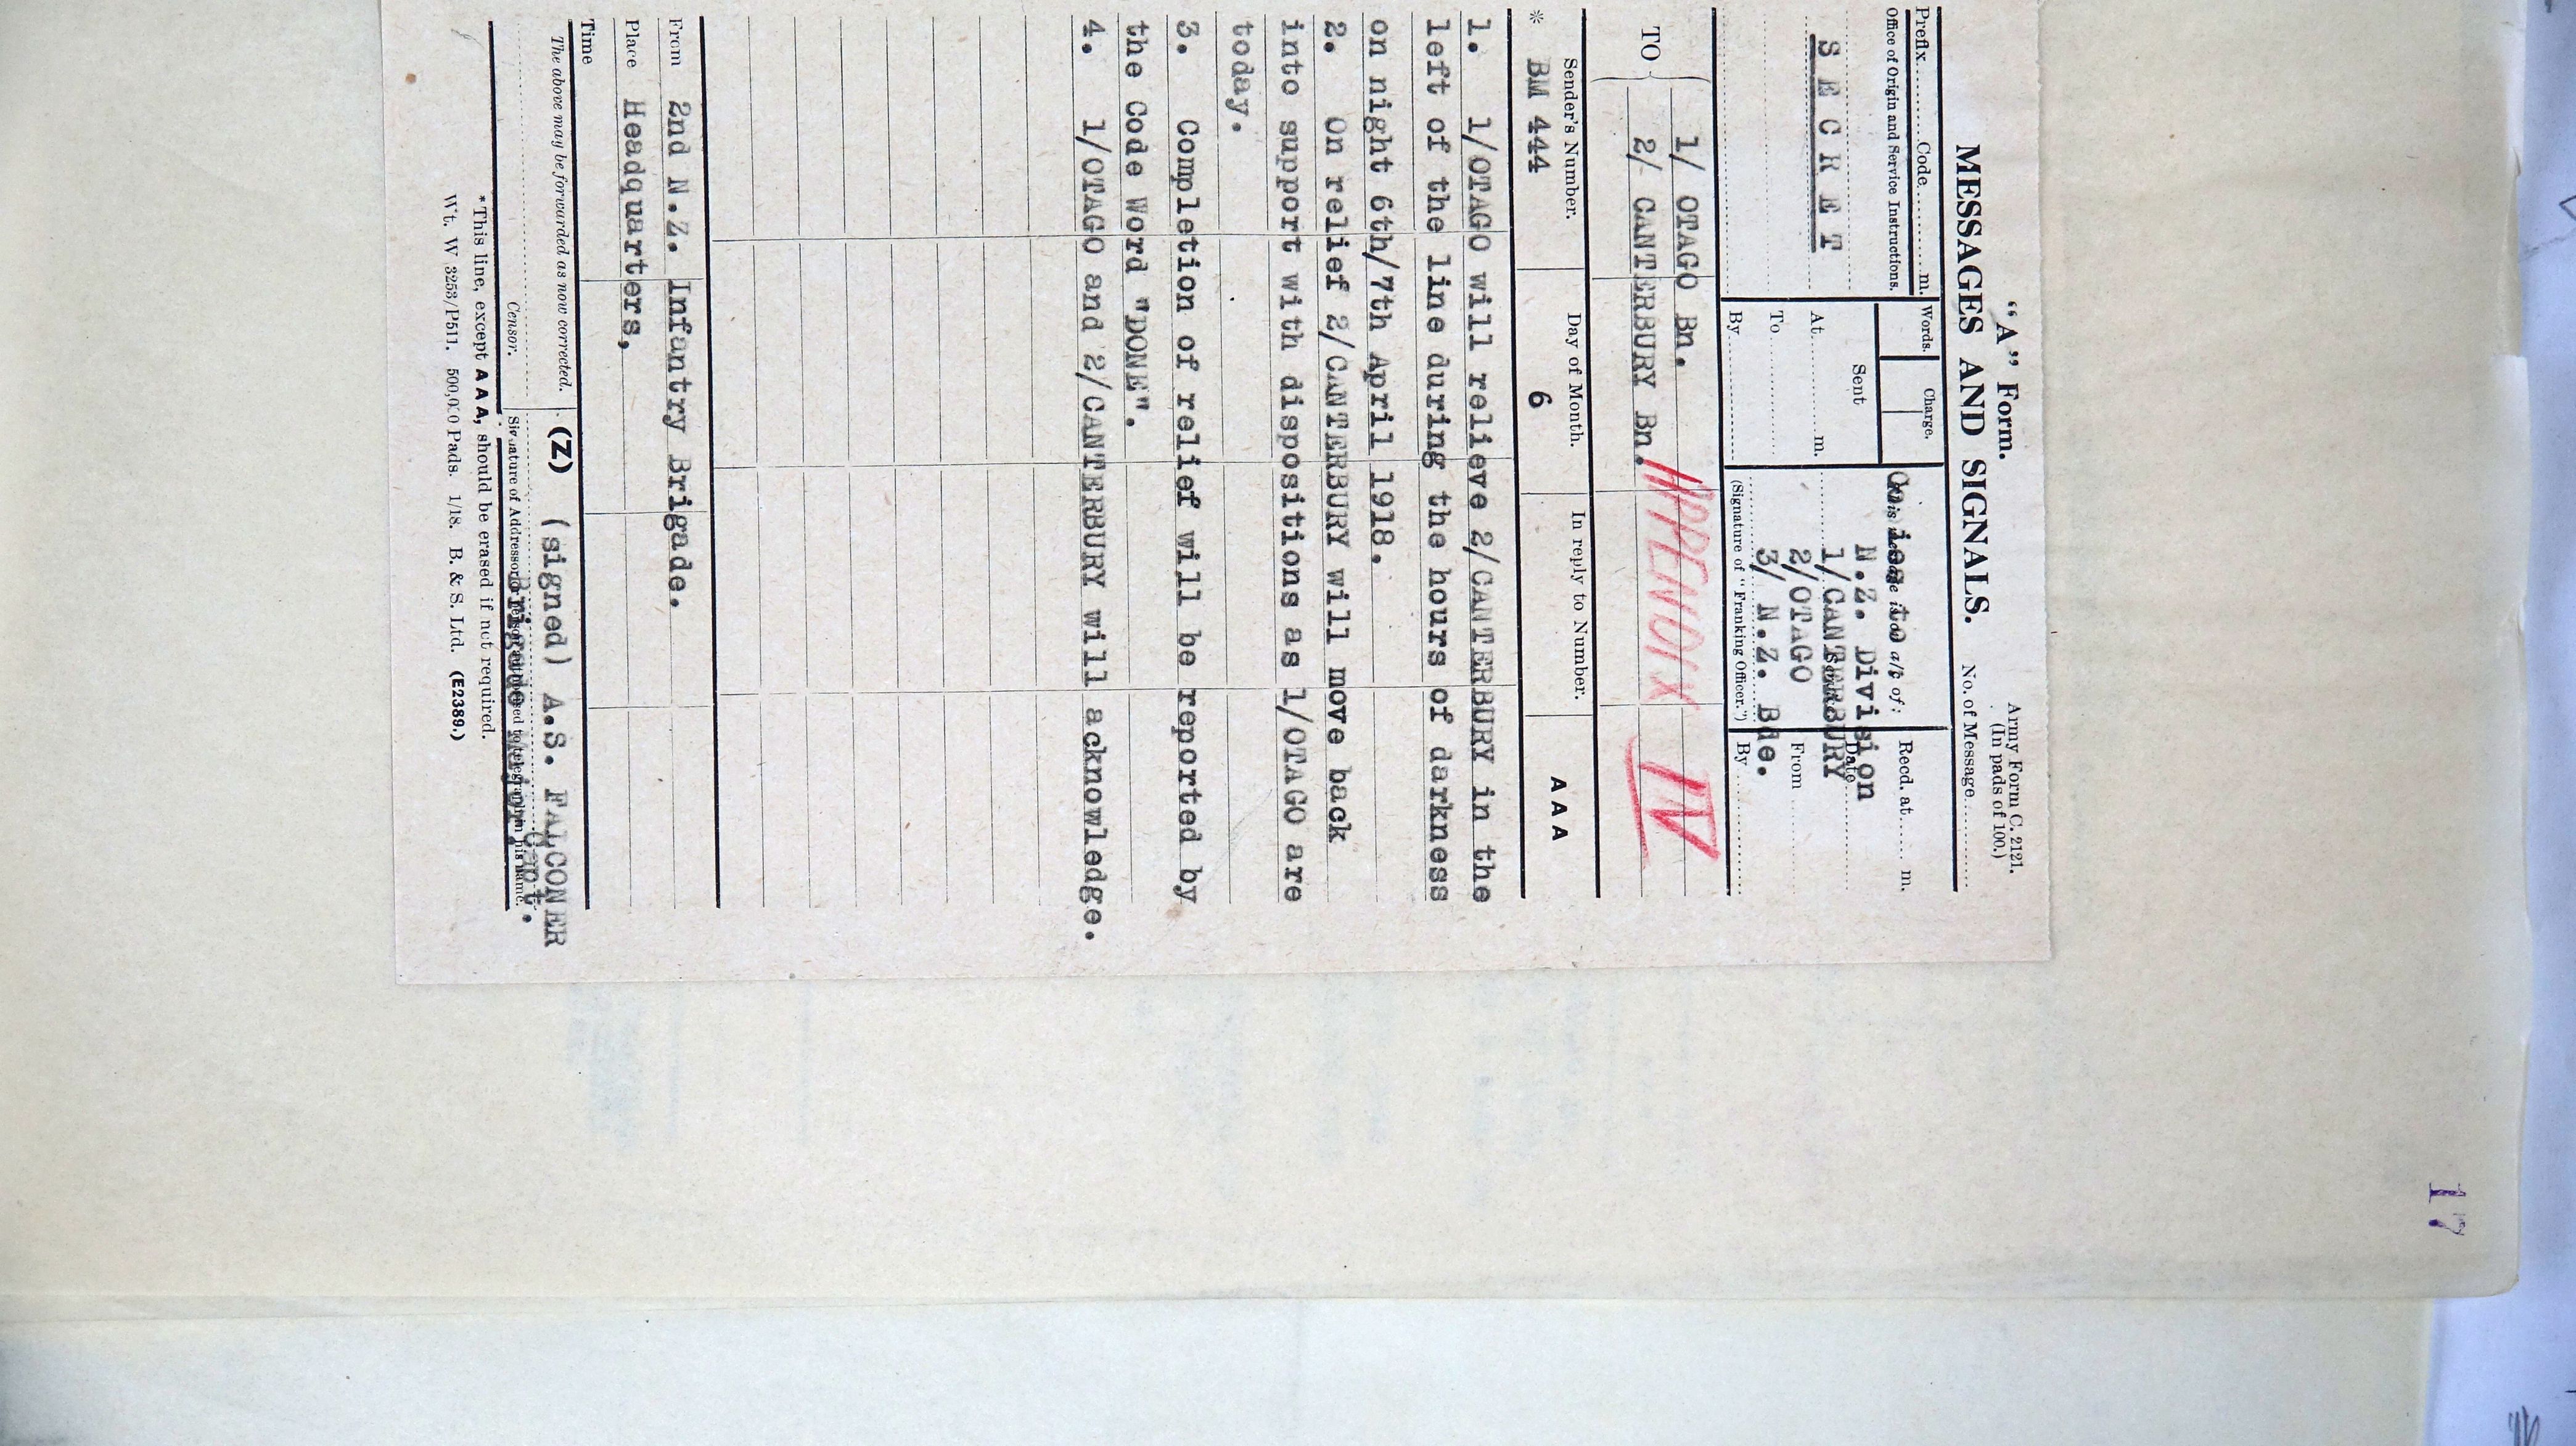 "A" Form.
Army Form C. 2121.
(In pads of 100.)
MESSAGES AND SIGNALS.
No. of Message
Prefix Code m.
Words.
Charge.
Office of Origin and Service Instructions.
Copies to
a/c of:
Recd. at m.
SECRET
Sent
At m.
To
By
N.Z. Division
1/CANTERBURY
2/OTAGO
3/ N.Z. Bde.
Date
From
By
(Signature of "Franking Officer.")
TO
1/ OTAGO Bn.
2/ CANTERBURY Bn.
APPENDIX IV
Sender's Number.
Day of Month.
In reply to Number.
AAA
* BM 444
6
1. 1/OTAGO will relieve 2/CANTERBURY in the
left of the line during the hours of darkness
on night 6th/7th April 1918.
2. On relief 2/CANTERBURY will move back
into support with dispositions as 1/OTAGO are
today.
3. Completion of relief will be reported by
the Code Word "DONE".
4. 1/OTAGO and 2/CANTERBURY will acknowledge.
From 2nd N.Z. Infantry Brigade.
Place Headquarters,
Time
The above may be forwarded as now corrected.
(Z)
(signed) A.S. FALCONER
Capt.
Censor.
Signature of Addressor
Brigade Major.
*This line, except AAA, should be erased if not required.
Wt. W 3253/P511. 500,000 Pads. 1/18. B. & S. Ltd. (E2389.)
17